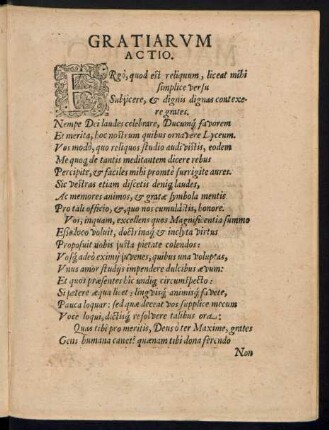 GRATIARVM
ACTIO.
ERgò, quod est reliquum, liceat mihi
simplice versu
Subijcere, & dignis dignas contexe-
re grates.
Nempe Dei laudes celebrare, Ducumq́ favorem
Et merita, hoc nostrum quibus ornavere Lyceum.
Vos modò, quo reliquos studio audivistis, eodem
Me quoq de tantis meditantem dicere rebus
Percipite, & faciles mihi promtè surrigite aures.
Sic vestras etiam discetis deniq laudes,
Ac memores animos, & gratæ symbola mentis
Pro tali officio, &, quo nos cumulâstis, honore.
Vos, inquam, excellens quos Magnificentia summo
Esse loco voluit, doctrinaq́ & inclyta virtus
Proposuit nobis justa pietate colendos:
Vosq́ adeò eximij juvenes, quibus una voluptas,
Vnus amor studijs impendere dulcibus ævum:
Et quot præsentes hîc undiq circumspecto:
Si petere æqua licet, linguisq́ animisq́ favete,
Pauca loquar: sed quæ deceat vos supplice mecum
Voce loqui, dictisq́ resolvere talibus ora:
Quas tibi pro meritis, Deus ôter Maxime, grates
Gens humana canet? quænam tibi dona ferendo
Non